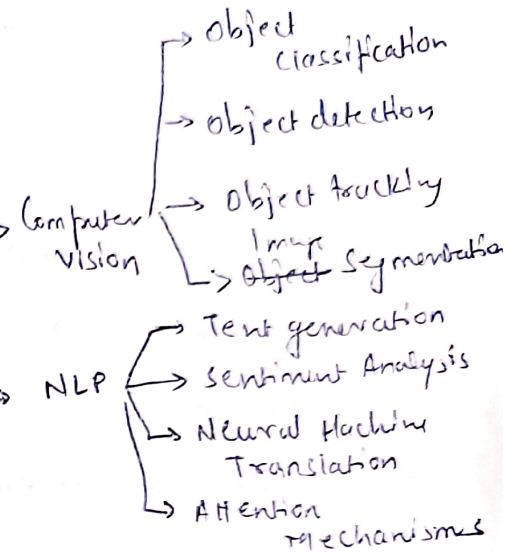 → Object
classification
→ Object detection
→ Computer vision
→ Object tracking
Image
→ ~~Object~~ Segmentation
→ NLP
→ Text generation
→ Sentiment Analysis
→ Neural Machine
Translation
→ Attention
Mechanismes